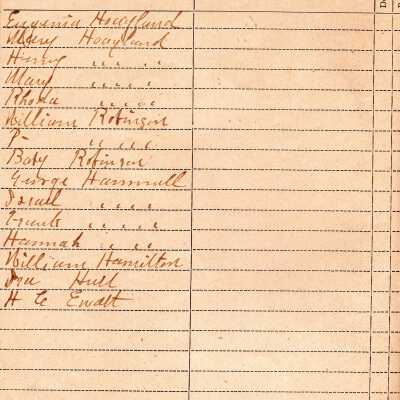 Eugenia Hoagland
Mary Hoagland
Henry " " " "
Mary " " " "
Rhoda " " " "
William Robinson
P— " " " "
Baby Robinson
George Hammell
Israel " " " "
Frank " " " "
Hannah " " " "
William Hamilton
Ida Hull
H C Ewalt